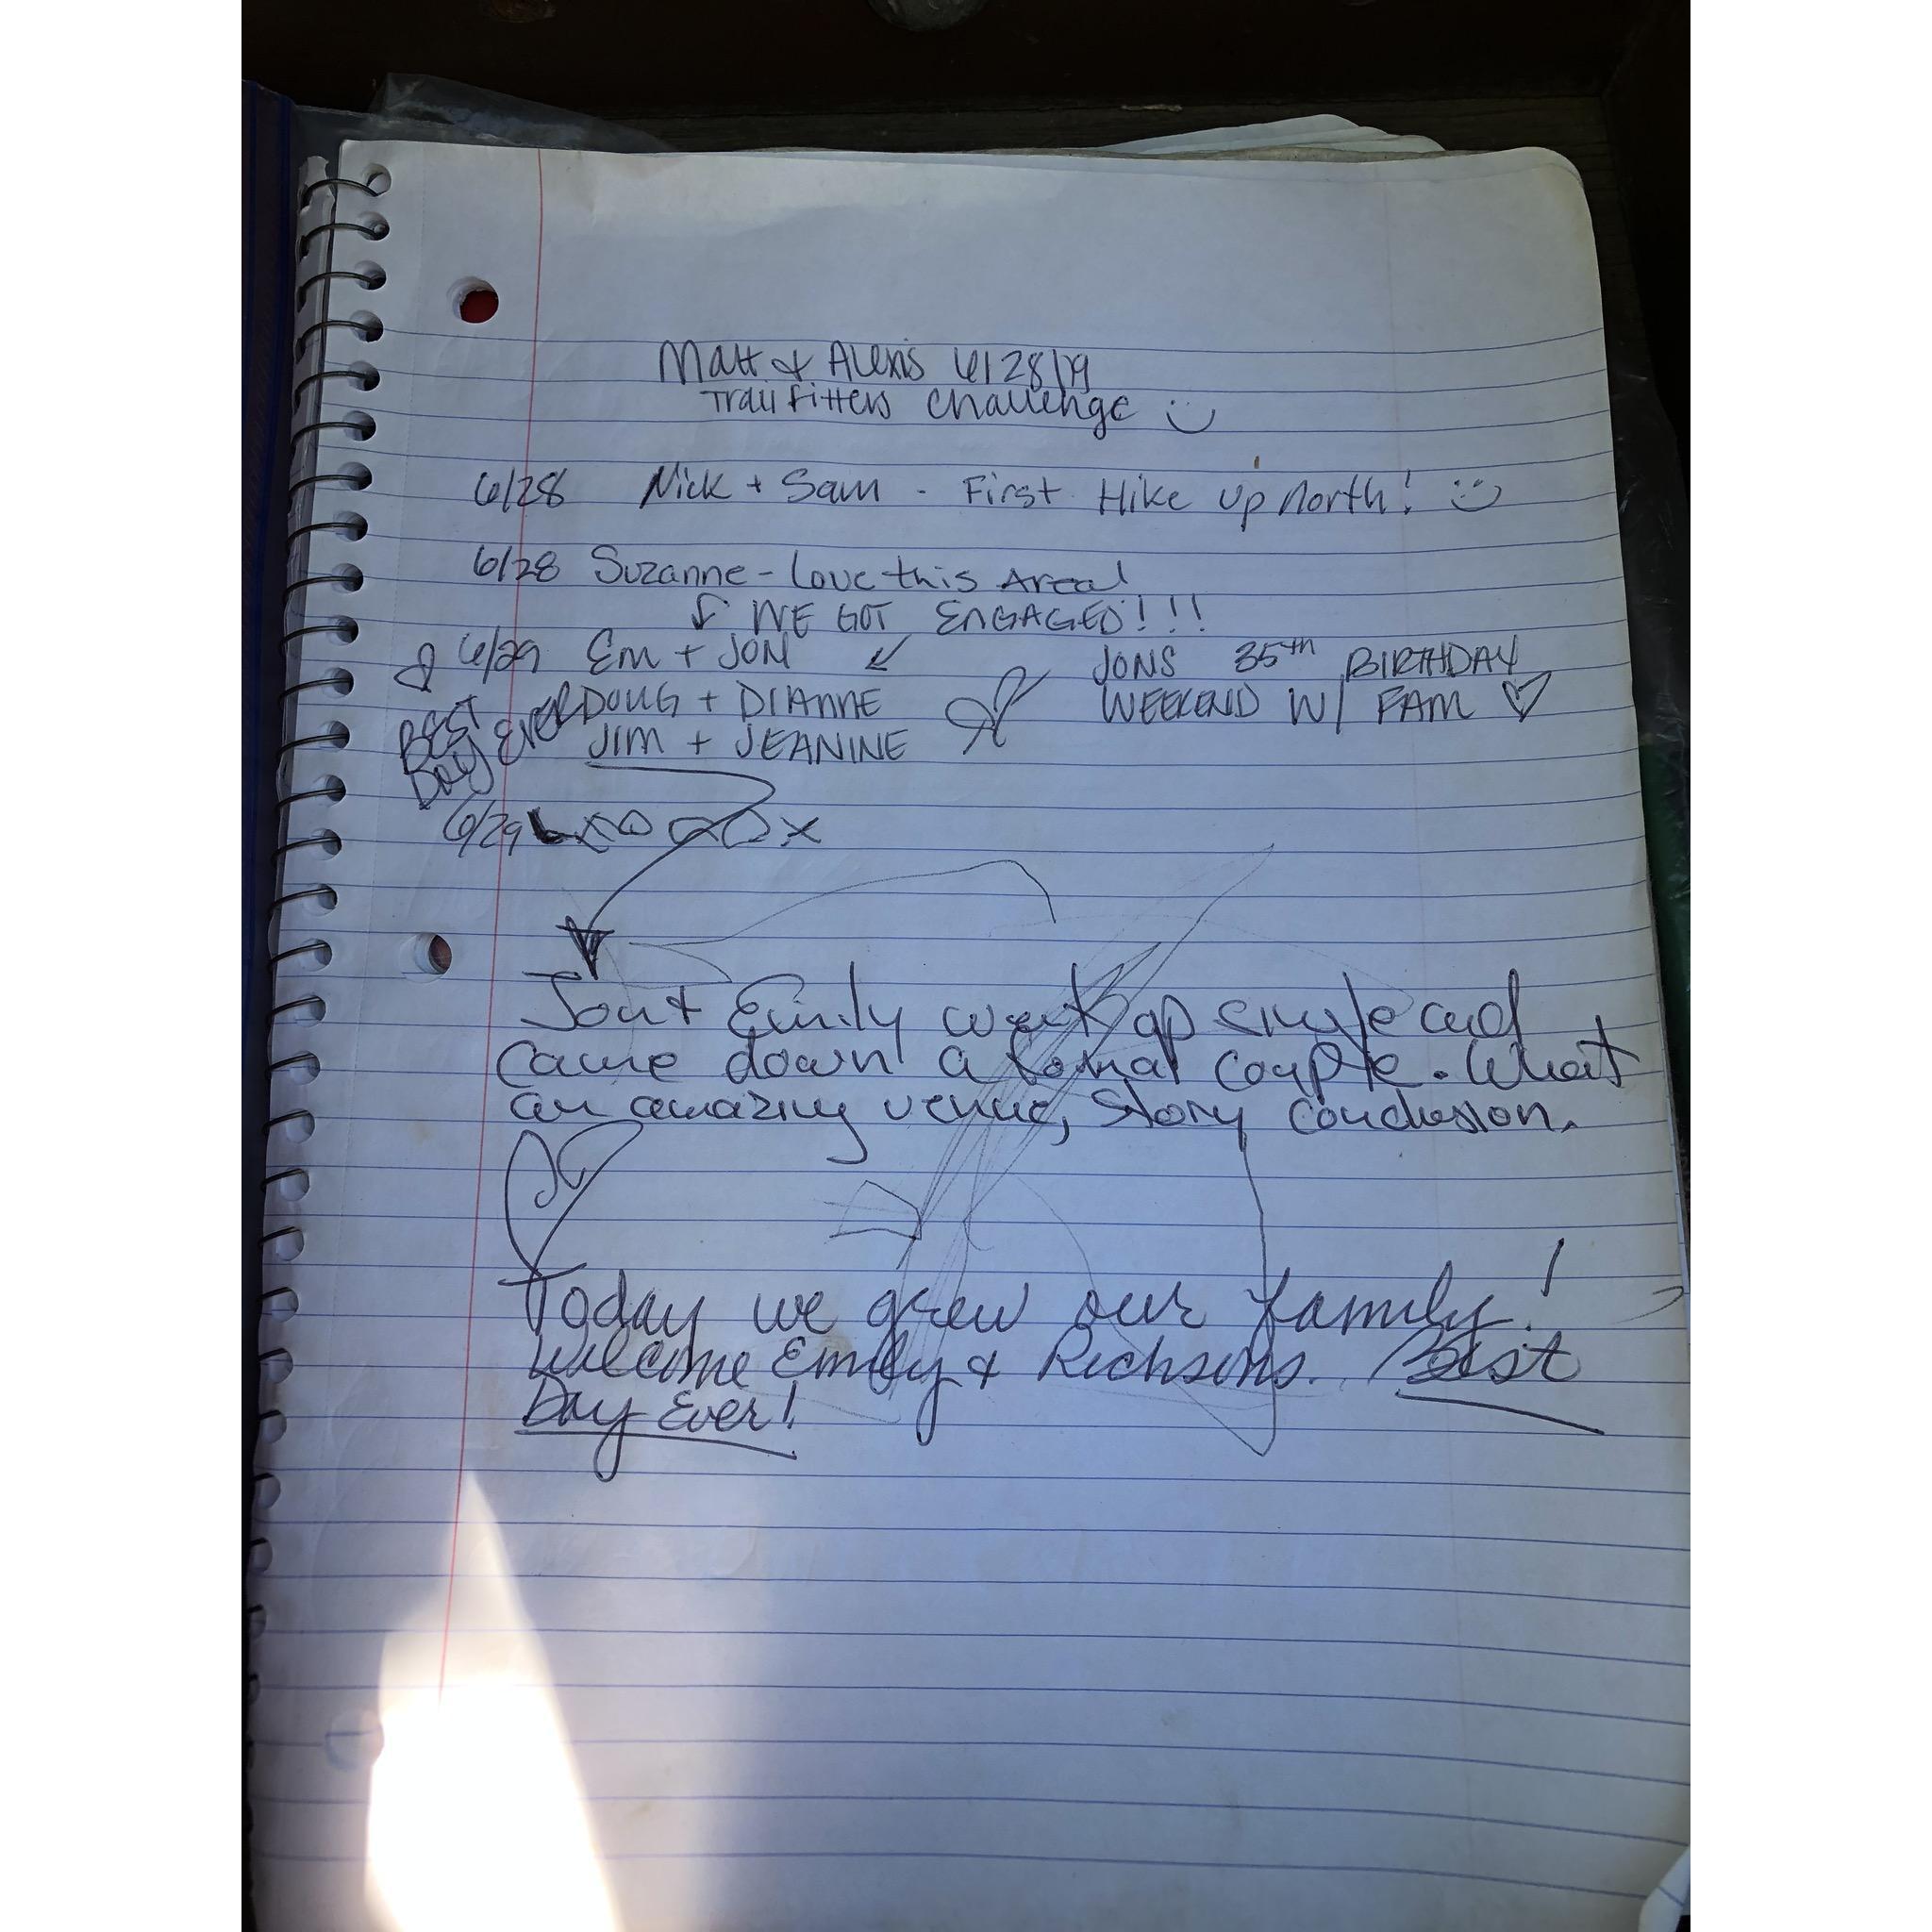 Matt & Alexis 6/28/19
Trail fitters challenge
6/28 Nick + Sam - First Hike up north!
6/28 Suzanne - Love this Area!
WE GOT ENGAGED!!!
6/29 Em + JON
JONS 35th BIRTHDAY
BEST DAY EVER
DOUG + DIANNE
WEEKEND W/ FAM
JIM + JEANINE
6/29
Jon + Emily went up single and
came down a couple. What
an amazing venue, story conclusion.
Today we grew our family!
Welcome Emily & Richsons. Best
Day Ever!